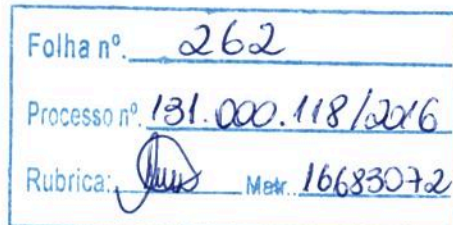 Folha nº. 262
Processo nº. 131.000.118/2016
Rubrica: Matr. 16683072